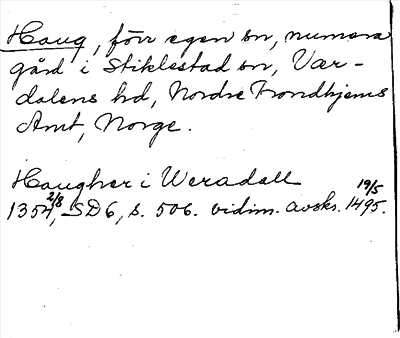 Haug, förr egen sn, numera
gård i Stiklestad sn, Vær-
dalens hd, Nordre Trondhjems
Amt, Norge.
Haugher i Weradall
1354 2/8, SD6, s. 506. vidim. avskr. 19/5 1495.